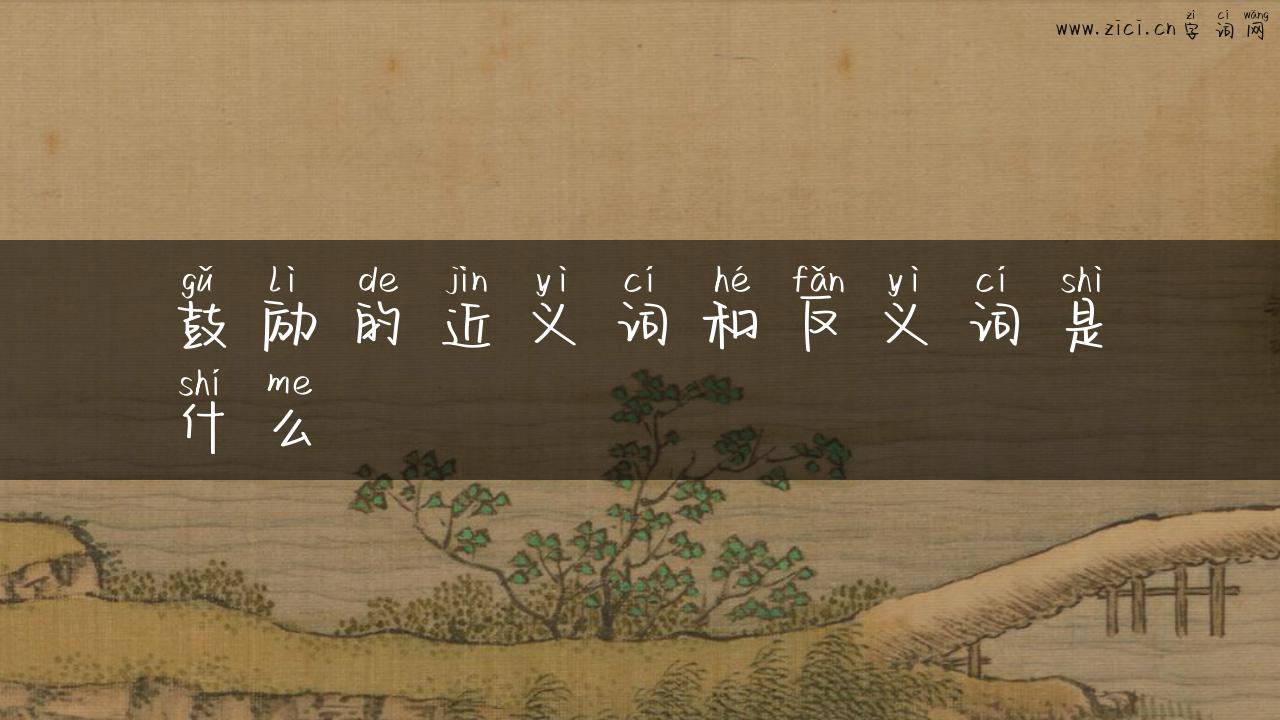 zì cí wǎng
www.zici.cn 字词网
gǔ lì de jìn yì cí hé fǎn yì cí shì
鼓励的近义词和反义词是
shí me
什么